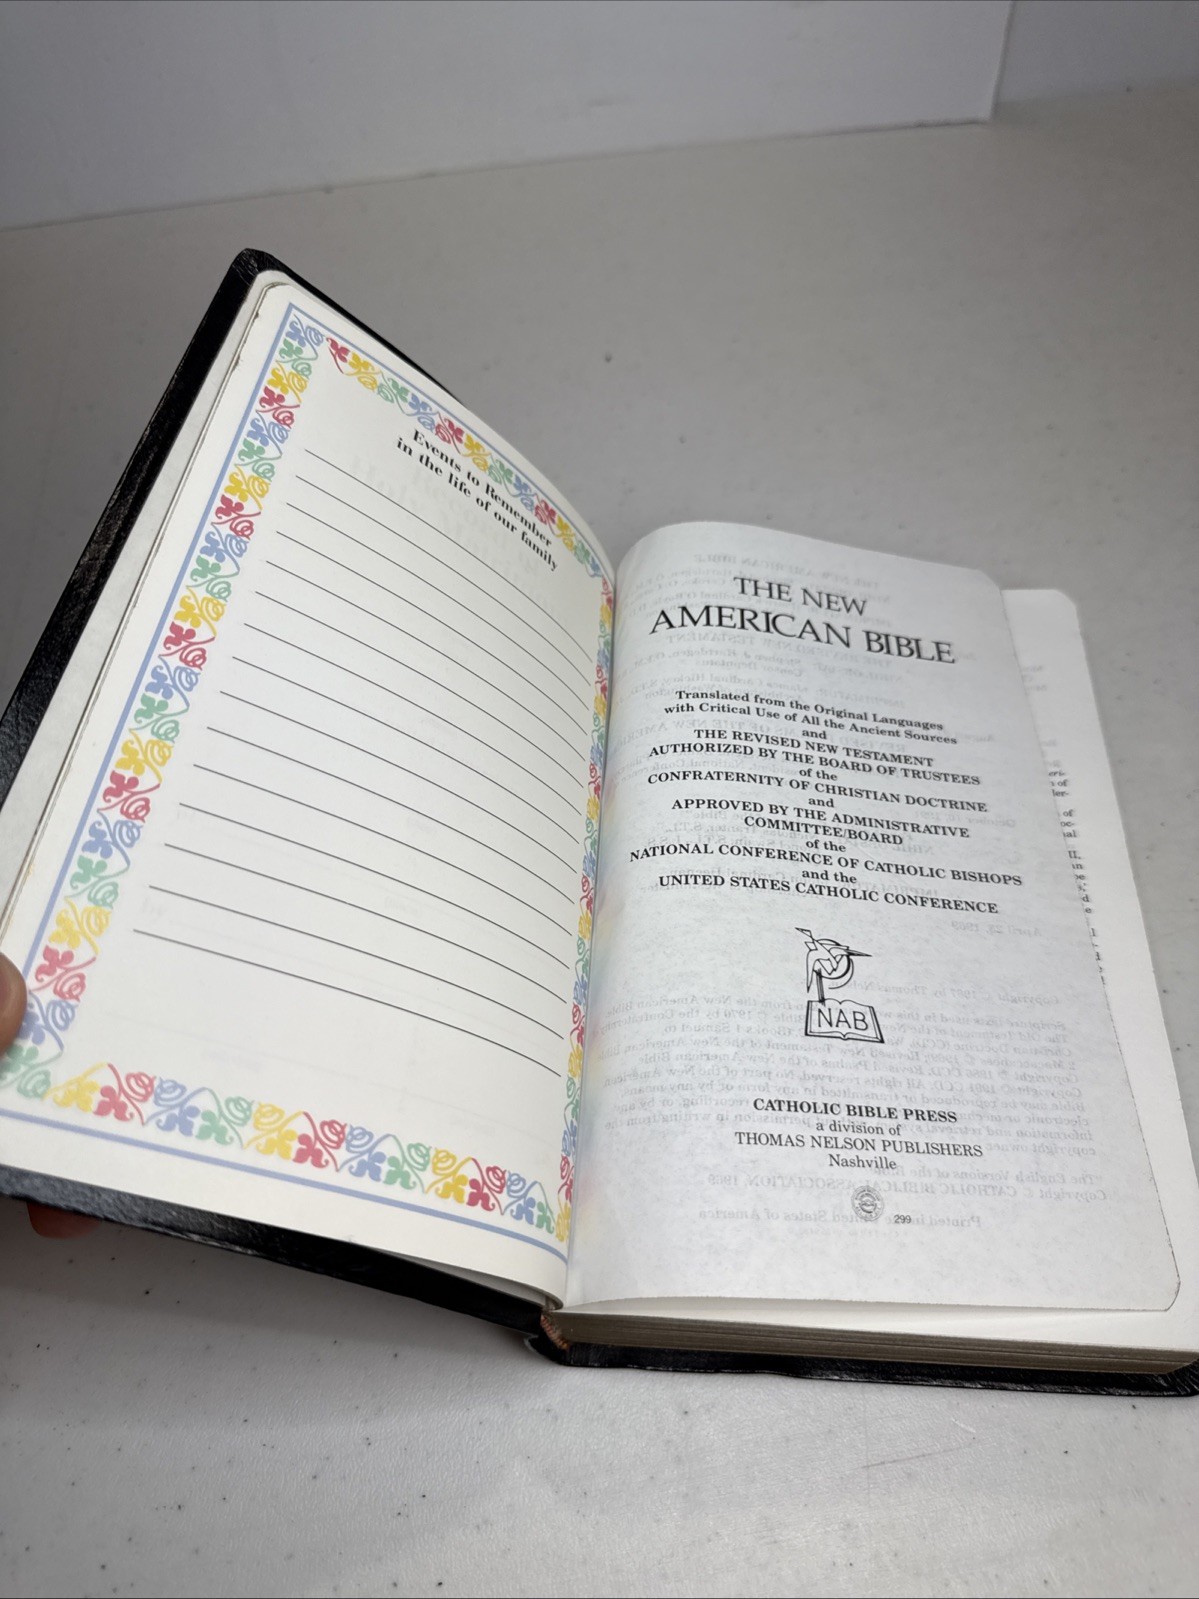 Events to Remember
in the life of our family
THE NEW
AMERICAN BIBLE
Translated from the Original Languages
with Critical Use of All the Ancient Sources
and
THE REVISED NEW TESTAMENT
AUTHORIZED BY THE BOARD OF TRUSTEES
of the
CONFRATERNITY OF CHRISTIAN DOCTRINE
and
APPROVED BY THE ADMINISTRATIVE
COMMITTEE/BOARD
of the
NATIONAL CONFERENCE OF CATHOLIC BISHOPS
and the
UNITED STATES CATHOLIC CONFERENCE
NAB
CATHOLIC BIBLE PRESS
a division of
THOMAS NELSON PUBLISHERS
Nashville
299